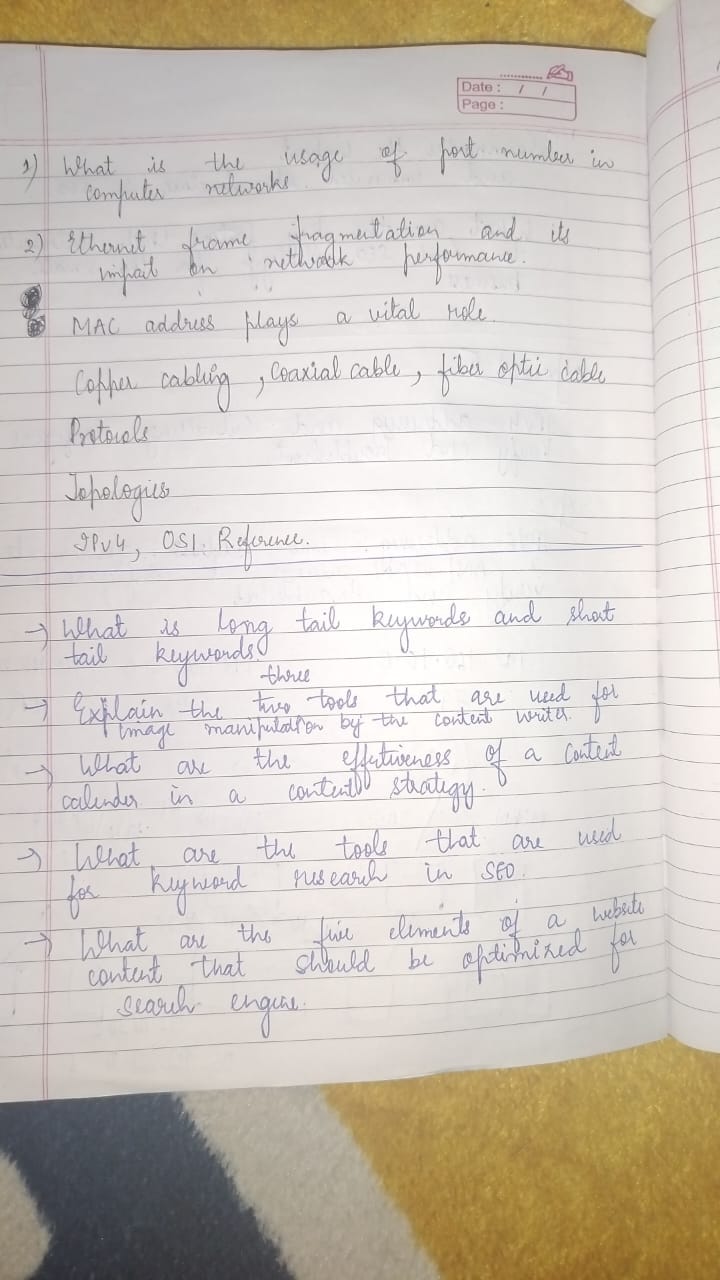 Date : / /
Page :
1) What is the usage of port number in
computer networks.
2) Ethernet frame fragmentation and its
impact on network performance.
MAC address plays a vital role.
Copper cabling, Coaxial cable, fiber optic cable
Protocols
Topologies
IPv4, OSI. Reference.
→ What is long tail keywords and short
tail keywords?
three
→ Explain the two tools that are used for
image manipulation by the content writer.
→ What are the effectiveness of a content
calender in a content strategy.
→ What are the tools that are used
for keyword research in SEO.
→ What are the five elements of a website
content that should be optimized for
search engine.